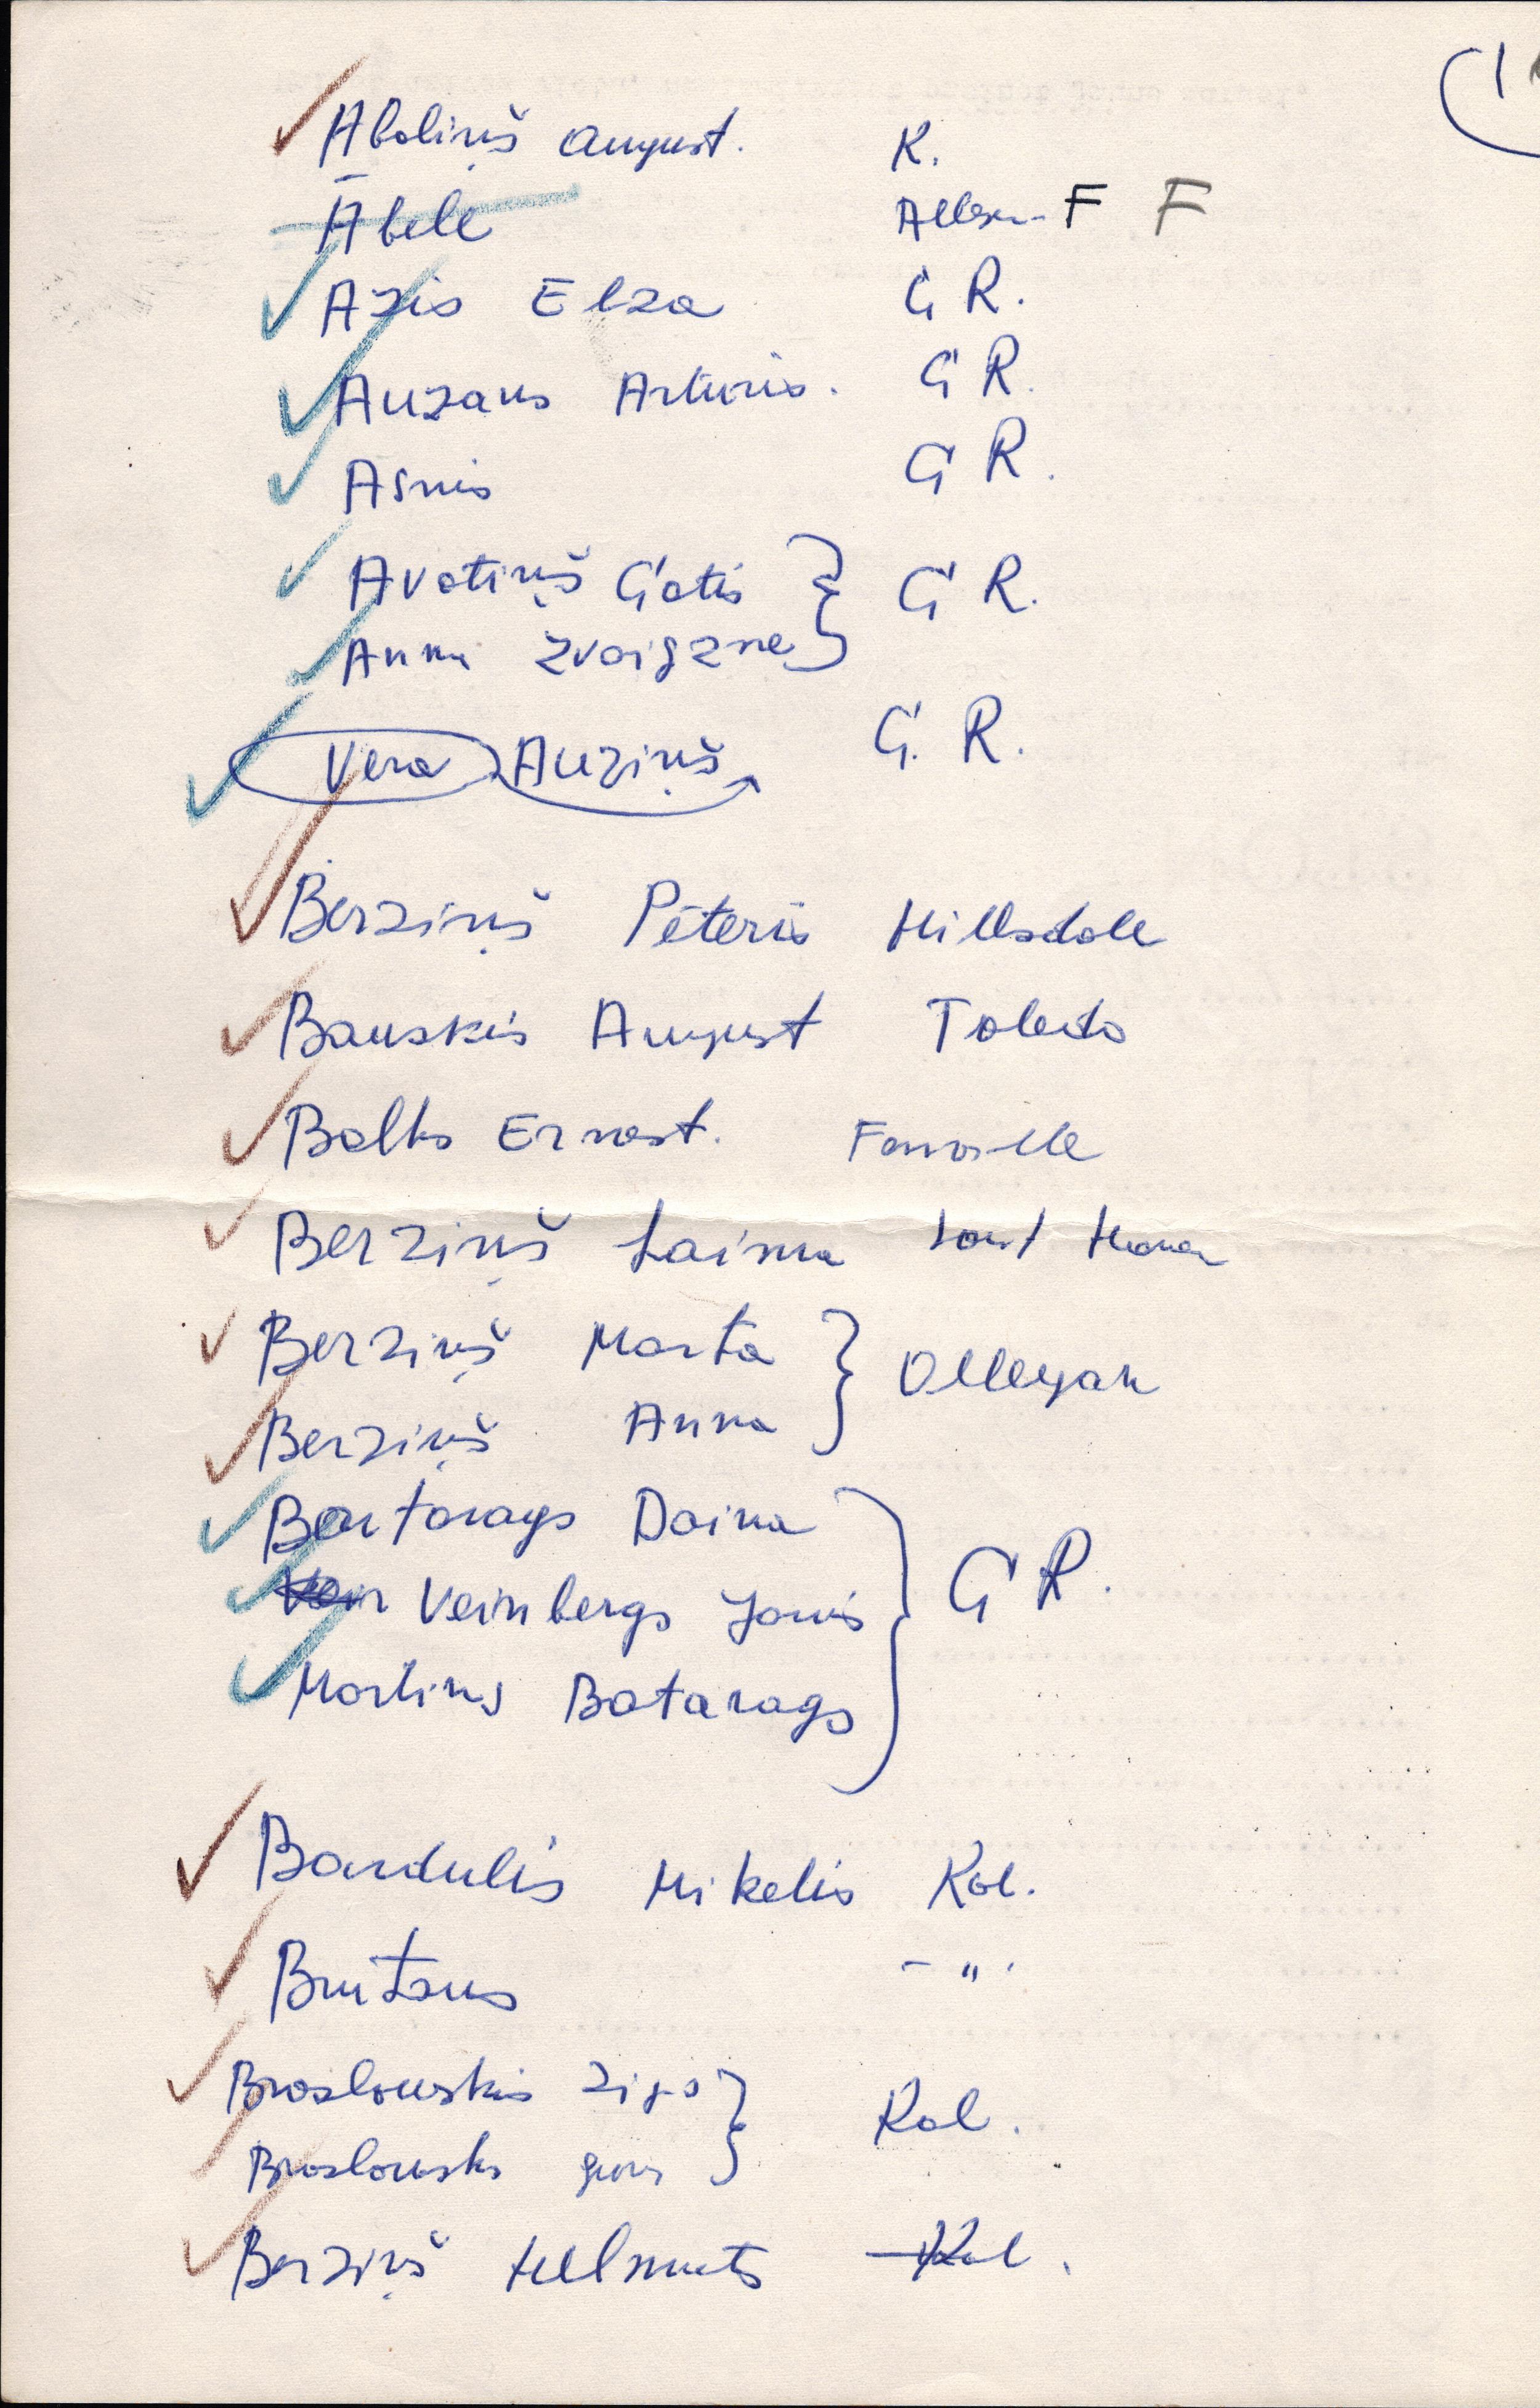 (1
Aboliņš August. K.
Ābele F F
Azis Elza G R.
Auzans Arturis. G R.
Asnis G R.
Avotiņš Gatis } G R.
Anna Zvaigzne
Vera Auziņš G. R.
Berziņš Pēteris Hillsdale
Bauskis August Toledo
Balks Ernest.
Berziņš Laima
Berziņš Marta }
Berziņš Anna
Bartarags Daina
Veinbergs Janis } G R.
Martins Batarags
Bardulis Mikelis Kal.
- " -
Braslauskis } Kal.
Braslausks
Berziņš Helmuts Kal.